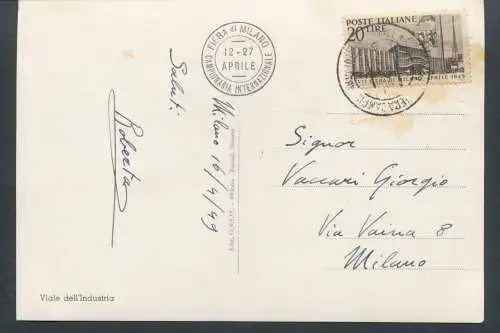 FIERA di MILANO
12-27
APRILE
CAMPIONARIA INTERNAZIONALE
POSTE ITALIANE
20 LIRE
FIERA DI MILANO APRILE 1949
Saluti
Roberta
Milano 16/4/49
Signor
Vaccari Giorgio
Via Vaina 8
Milano
Viale dell'Industria